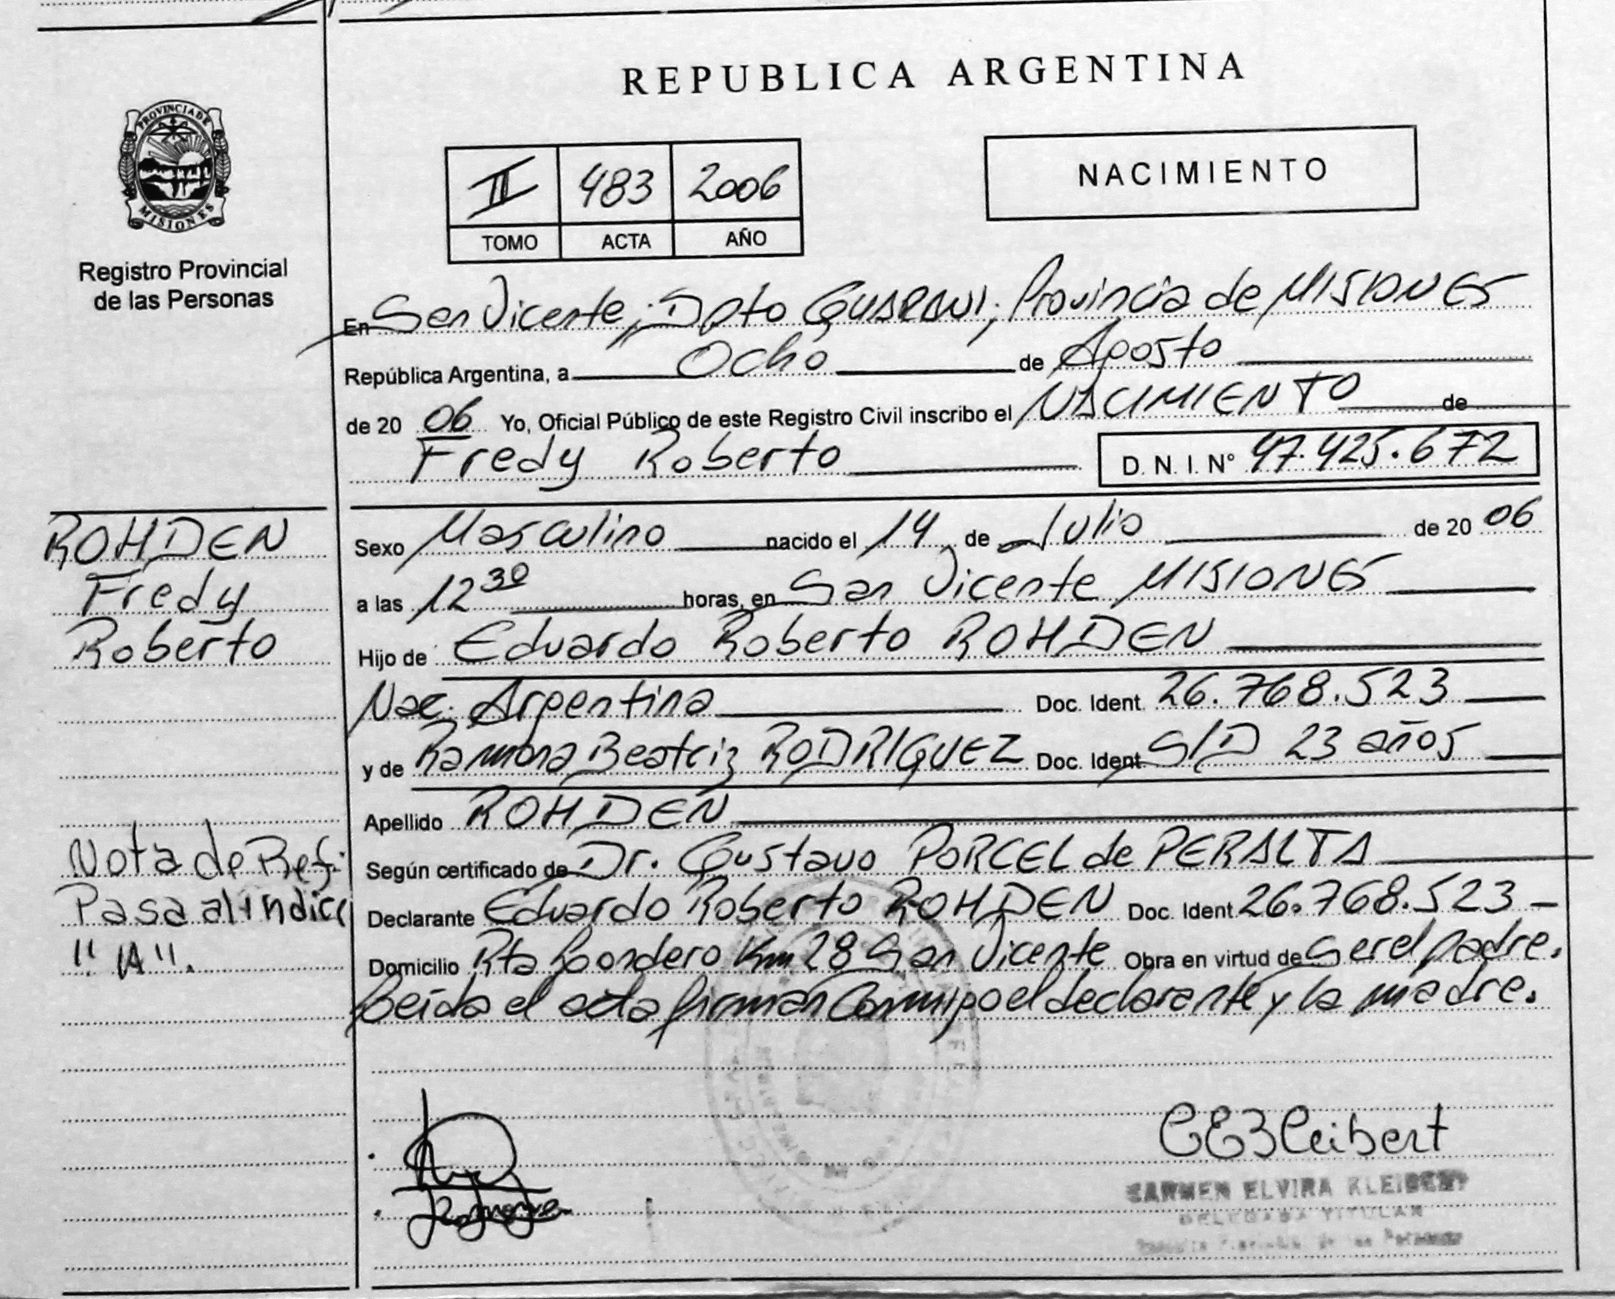 REPUBLICA ARGENTINA
PROVINCIA DE
MISIONES
Registro Provincial
de las Personas
II 483 2006
TOMO ACTA AÑO
NACIMIENTO
En San Vicente; Dpto GUARANI; Provincia de MISIONES
República Argentina, a Ocho de Agosto
de 20 06 Yo, Oficial Público de este Registro Civil inscribo el NACIMIENTO de
Fredy Roberto D. N. I. N° 47.425.672
ROHDEN
Fredy
Roberto
Sexo Masculino nacido el 14 de Julio de 20 06
a las 12 30 horas, en San Vicente MISIONES
Hijo de Eduardo Roberto ROHDEN
Nac. Argentina Doc. Ident 26.768.523
y de Ramona Beatriz RODRIGUEZ Doc. Ident S/D 23 años
Apellido ROHDEN
Según certificado de Dr. Gustavo PORCEL de PERALTA
Declarante Eduardo Roberto ROHDEN Doc. Ident 26.768.523
Domicilio Rta Km 28 San Vicente Obra en virtud de ser el padre.
Leída el acta firman conmigo el declarante y la madre.
Nota de Ref:
Pasa al indice
"A".
CARMEN ELVIRA KLEIBERT
DELEGADA TITULAR